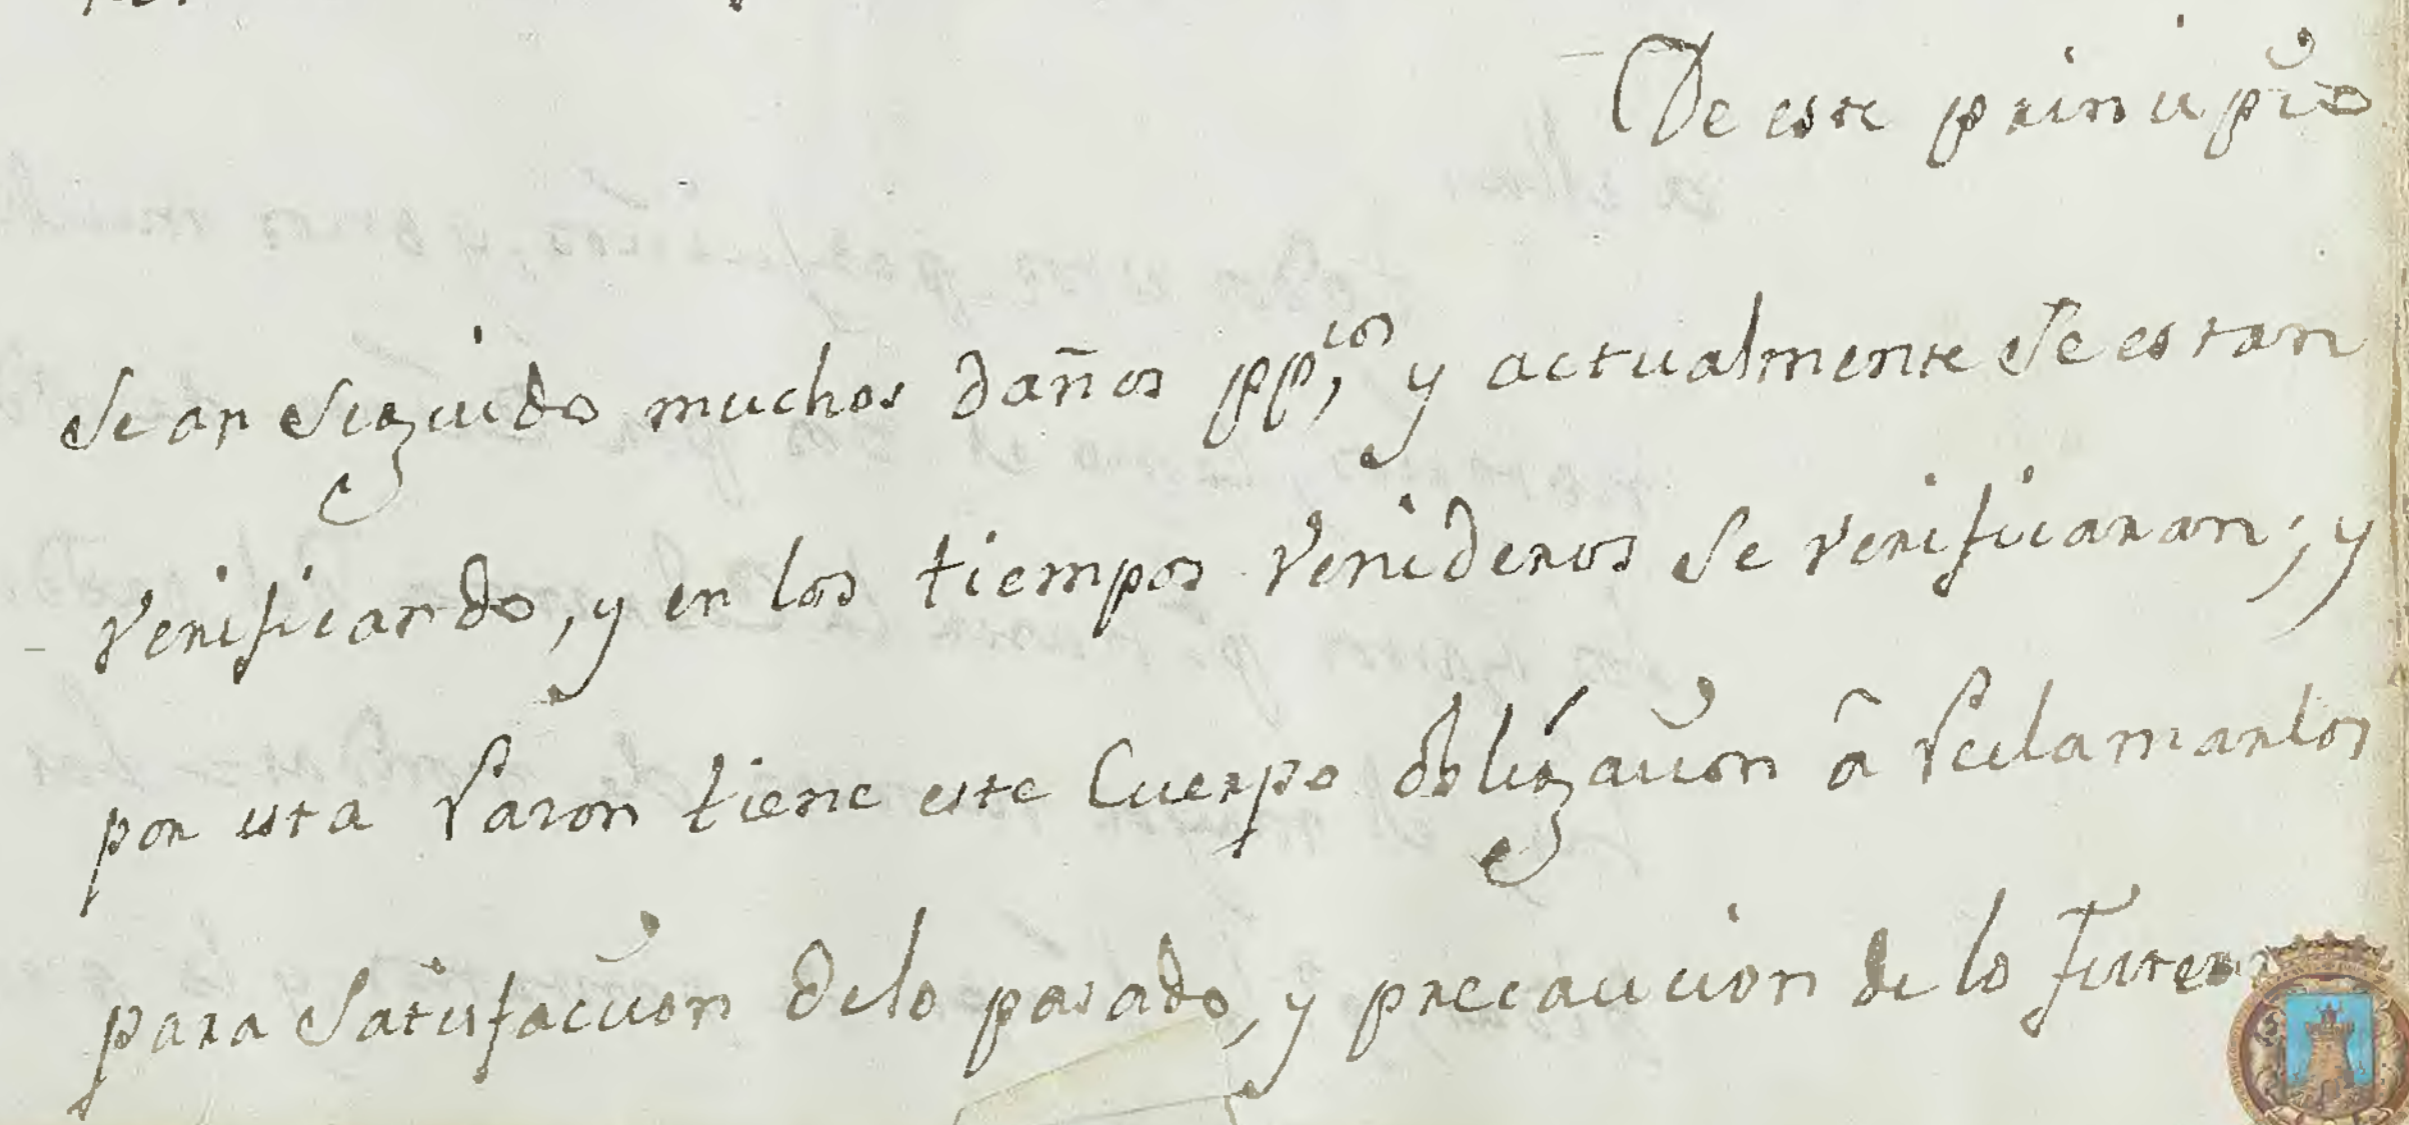 De este principio
Se an Seguido muchos daños pp,cos y actualmente Se estan
Verificando, y en los tiempos Venideros Se verificaran; y
por esta Razon tiene este Cuerpo obligacion â Reclamarlos
para Satisfaccion de lo pasado, y precaucion de lo futuro